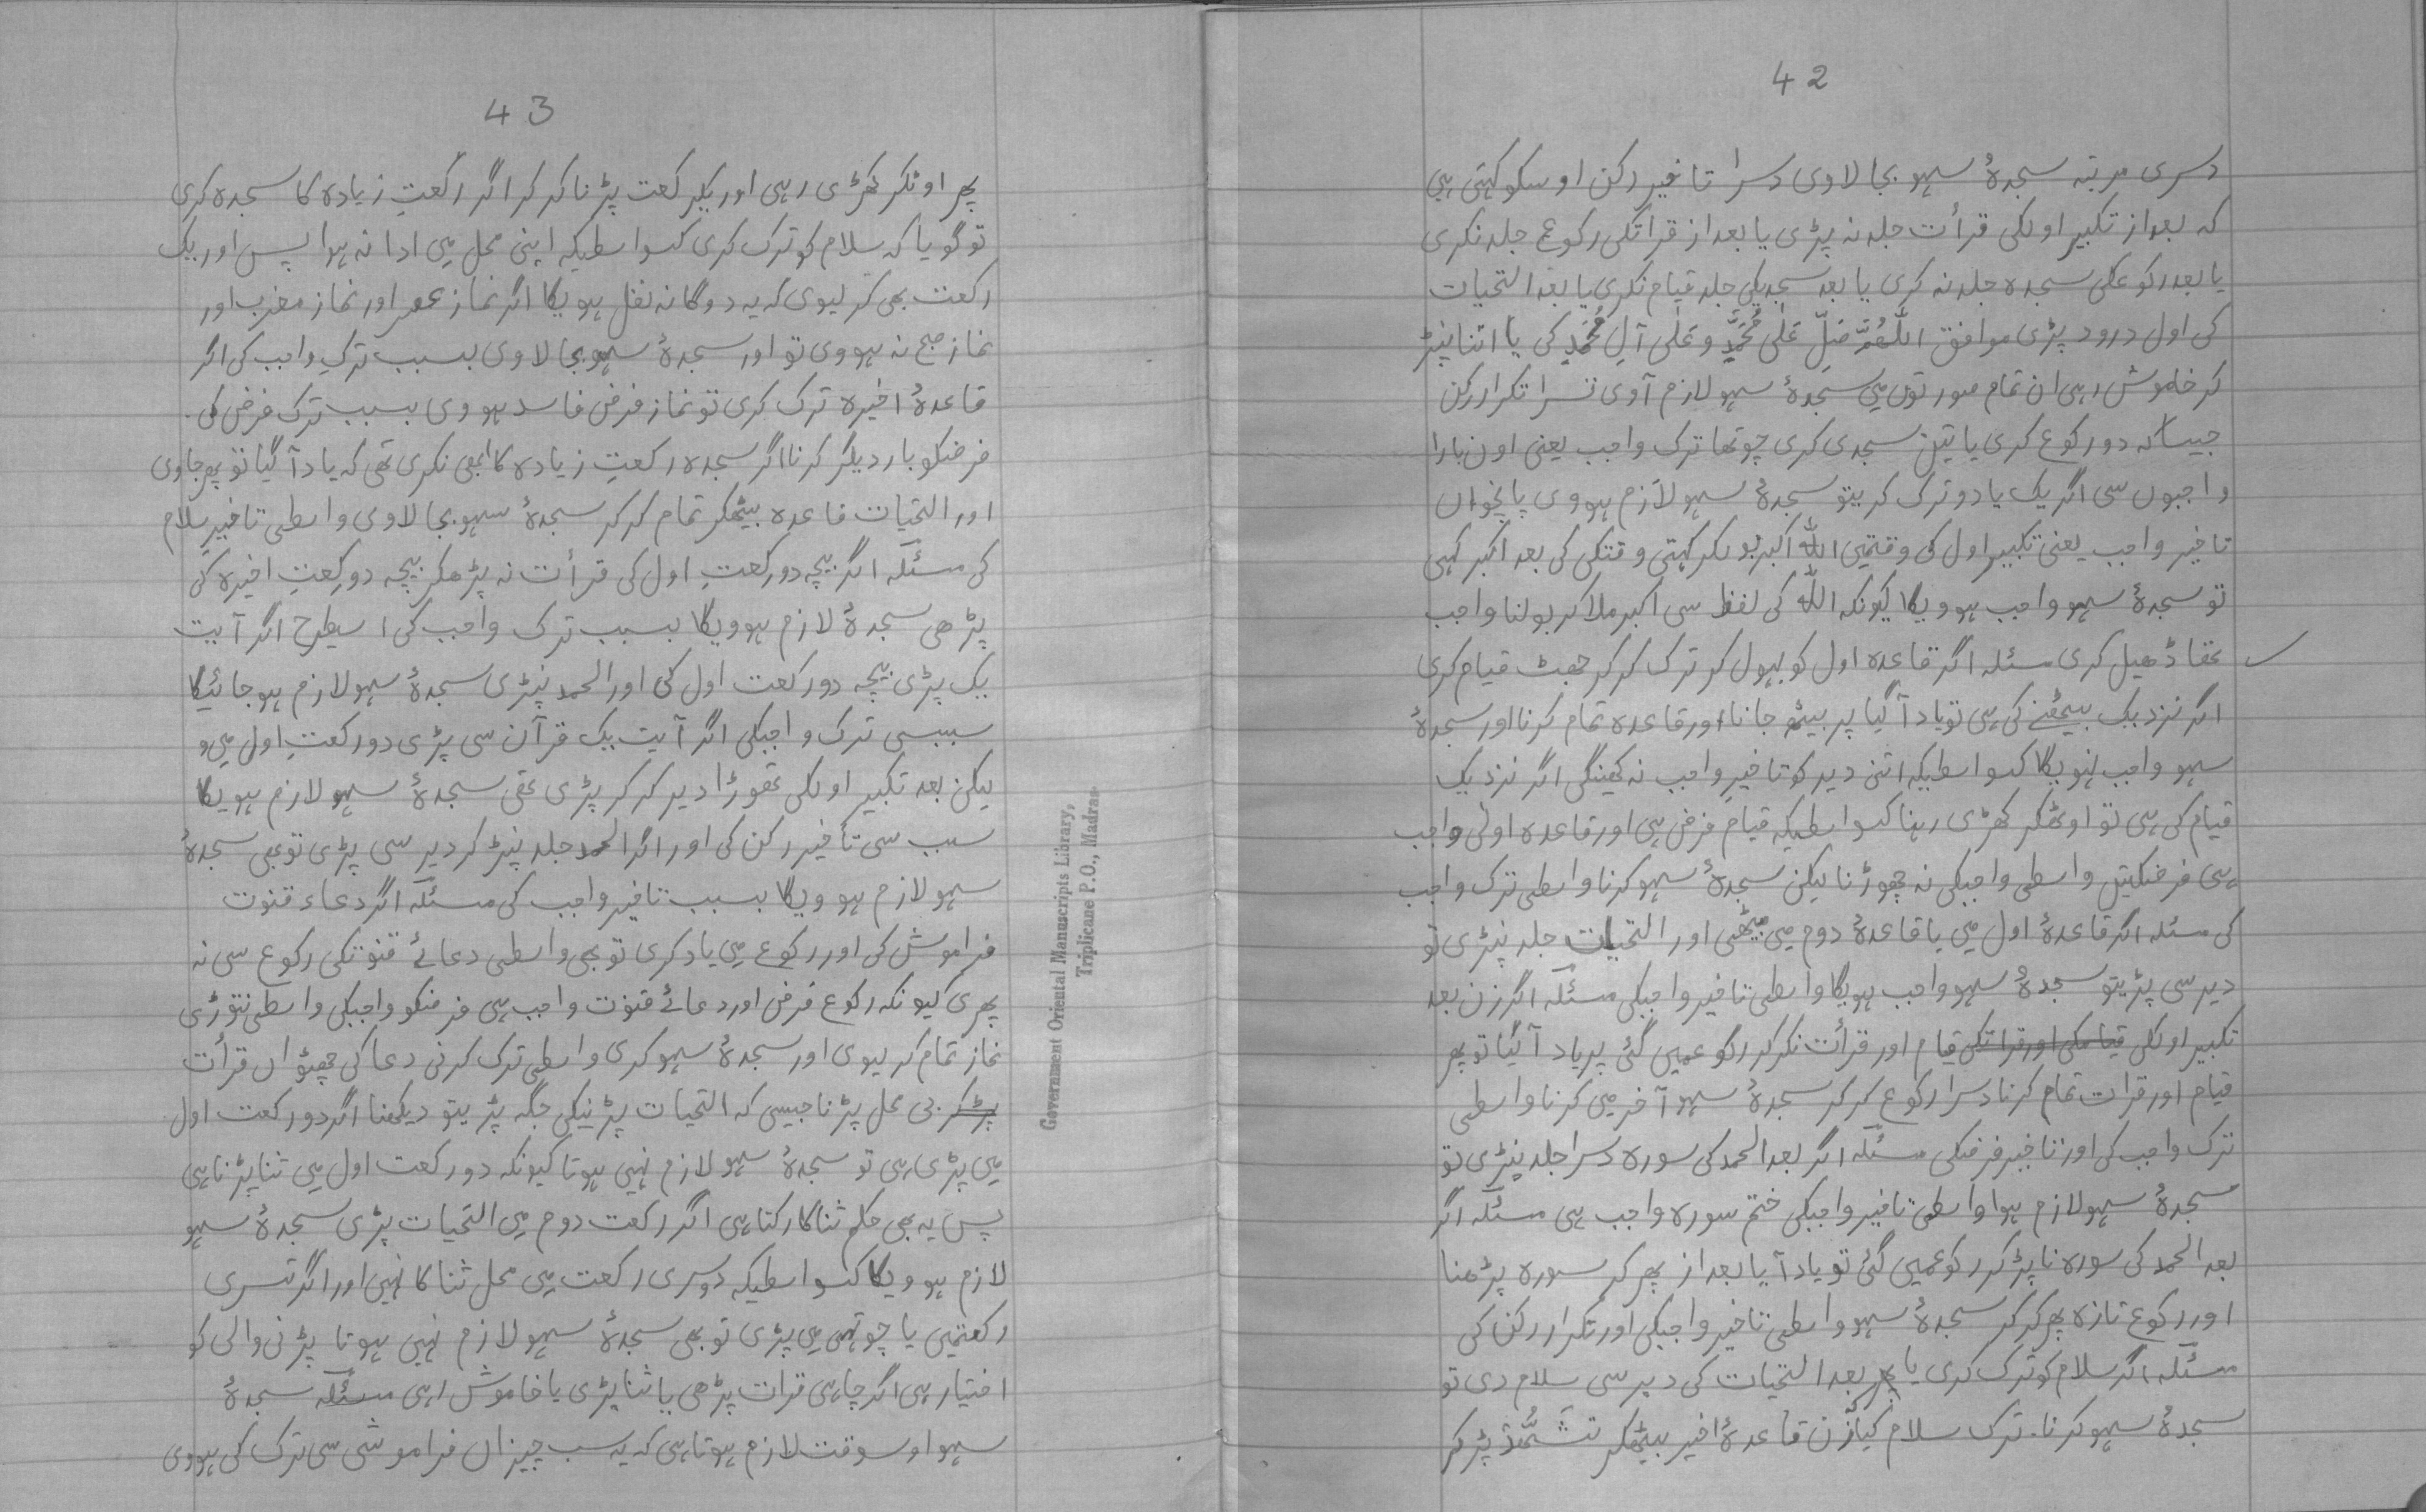 42
دسری مرتبہ سجدۂ سہو بجا لاوی دسرا تاخیر رکن اوسکو کہتی ہی
کہ بعد از تکبیر اولکی قرأت جلد نہ پڑی یا بعد از قراتکی رکوع جلد نکری
یا بعد رکوعکی سجدہ جلد نہ کری یا بعد سجدیکی جلد قیام نکری یا بعد التحیات
کی اول درود پڑی موافق اللّٰھُمَّ صَلِّ عَلٰی مُحَمَّدٍ وَّعَلٰی آلِ مُحَمَّدٍ کی یا اتنا نپڑ
کر خاموش رہی ان تمام صورتوں میں سجدۂ سہو لازم آوی تسرا تکرار رکن
جیسا کہ دو رکوع کری یا تین سجدی کری چوتھا ترک واجب یعنی اون بارا
واجبوں سی اگر یک یا دو ترک کریتو سجدۂ سہو لازم ہووی پانچواں
تاخیر واجب یعنی تکبیر اول کی وقتمیں اللہ اکبر بولکر کہتی وقتکی کی بعد اکبر کہی
تو سجدۂ سہو واجب ہوویگا کیونکہ اللہ کی لفظ سی اکبر ملا کر بولنا واجب
تھا ڈھیل کری مسئلہ اگر قاعدہ اول کو بہول کر ترک کر کر جھٹ قیام کری
اگر نزدیک بیٹھنے کی ہی تو یاد آگیا پر بیٹھ جانا اور قاعدہ تمام کرنا اور سجدۂ
سہو واجب نہویگا کسواسطیکہ اتنی دیر کو تاخیر واجب نہ کہینگی اگر نزدیک
قیام کی ہی تو اوٹھکر کھڑی رہنا کسواسطیکہ قیام فرض ہی اور قاعدہ اولی واجب
ہی فرضکتیں واسطی واجبکی نہ چھوڑنا لیکن سجدۂ سہو کرنا واسطی ترک واجب
کی مسئلہ اگر قاعدۂ اول میں یا قاعدۂ دوم میں بیٹھی اور التحیات جلد نپڑی تو
دیر سی پڑیتو سجدۂ سہو واجب ہویگا واسطی تاخیر واجبکی مسئلہ اگر زن بعد
تکبیر اولکی قیامکی اور قراتکی قیام اور قرأت نکر کر رکوعمیں گئی پر یاد آگیا تو پھر
قیام اور قرات تمام کرنا دسرا رکوع کر کر سجدۂ سہو آخر میں کرنا واسطی
ترک واجب کی اور تاخیر فرضکی مسئلہ اگر بعد الحمد کی سورہ دسرا جلد نپڑی تو
سجدۂ سہو لازم ہوا واسطی تاخیر واجبکی ختم سورہ واجب ہی مسئلہ اگر
بعد الحمد کی سورہ نا پڑ کر رکوعمیں گئی تو یاد آیا بعد از پھر کر سورہ پڑھنا
اور رکوع تازہ پھر کر کر سجدۂ سہو واسطی تاخیر واجبکی اور تکرار رکن کی
مسئلہ اگر سلام کو ترک کری یا پھر بعد التحیات کی دیر سی سلام دی تو
سجدۂ سہو کرنا۔ ترک سلام کیا زن قاعدۂ اخیر بیٹھکر تَشَہُّدْ پڑ کر
43
پھر اوٹکر کھڑی رہی اور یکرکعت پڑنا کر کر اگر رکعتِ زیادہ کا سجدہ کری
تو گویا کہ سلام کو ترک کری کسواسطیکہ اپنی محل میں ادا نہ ہوا پس اور یک
رکعت بھی کر لیوی کہ یہ دوگانہ نفل ہویگا اگر نماز عصر اور نماز مغرب اور
نماز صبح نہ ہووی تو اور سجدۂ سہو بجا لاوی بسبب ترکِ واجب کی اگر
قاعدۂ اخیرہ ترک کری تو نماز فرض فاسد ہووی بسبب ترک فرض کی۔
فرضکو بار دیگر کرنا اگر سجدہ رکعتِ زیادہ کا ابھی نکری تھی کہ یاد آگیا تو پھر جاوی
اور التحیات قاعدہ بیٹھکر تمام کر کر سجدۂ سہو بجا لاوی واسطی تاخیر سلام
کی مسئلہ اگر بیچہ دو رکعتِ اول کی قرأت نہ پڑھکر بیچہ دو رکعتِ اخیرہ کی
پڑھی سجدۂ لازم ہوویگا بسبب ترک واجب کی اسیطرح اگر آیت
یک پڑی بیچہ دو رکعت اول کی اور الحمد نپڑی سجدۂ سہو لازم ہو جائیگا
سببسی ترک واجبکی اگر آیت یک قرآن سی پڑی دو رکعتِ اول میں و
لیکن بعد تکبیر اولکی تھوڑا دیر کر کر پڑی تھی سجدۂ سہو لازم ہویگا
سبب سی تأخیر رکن کی اور اگر الحمد جلد نپڑ کر دیر سی پڑی تو بھی سجدۂ
سہو لازم ہوویگا بسبب تاخیر واجب کی مسئلہ اگر دعاء قنوت
فراموش کی اور رکوع میں یاد کری تو بھی واسطی دعائے قنوتکی رکوع سی نہ
پھری کیونکہ رکوع فرض اور دعائے قنوت واجب ہی فرضکو واجبکی واسطی نتوڑی
نماز تمام کر لیوی اور سجدۂ سہو کری واسطی ترک کرنی دعا کی چھٹواں قرأت
پڑکر بی محل پڑنا جیسی کہ التحیات پڑنیکی جگہ پڑیتو دیکھنا اگر دو رکعت اول
میں پڑی ہی تو سجدۂ سہو لازم نہیں ہوتا کیونکہ دو رکعت اول میں ثنا پڑنا ہی
پس یہ بھی حکم ثنا کا رکتا ہی اگر رکعت دوم میں التحیات پڑی سجدۂ سہو
لازم ہوویگا کسواسطیکہ دوسری رکعت میں محل ثنا کا نہیں اور اگر تسری
رکعتمیں یا چوتھی میں پڑی تو بھی سجدۂ سہو لازم نہیں ہوتا پڑنی والی کو
اختیار ہی اگر چاہی قرات پڑھی یا ثنا پڑی یا خاموش رہی مسئلہ سجدۂ
سہو اوسوقت لازم ہوتا ہی کہ یہ سب چیزاں فراموشی سی ترک کی ہووی
Government Oriental Manuscripts Library,
Triplicane P.O., Madras